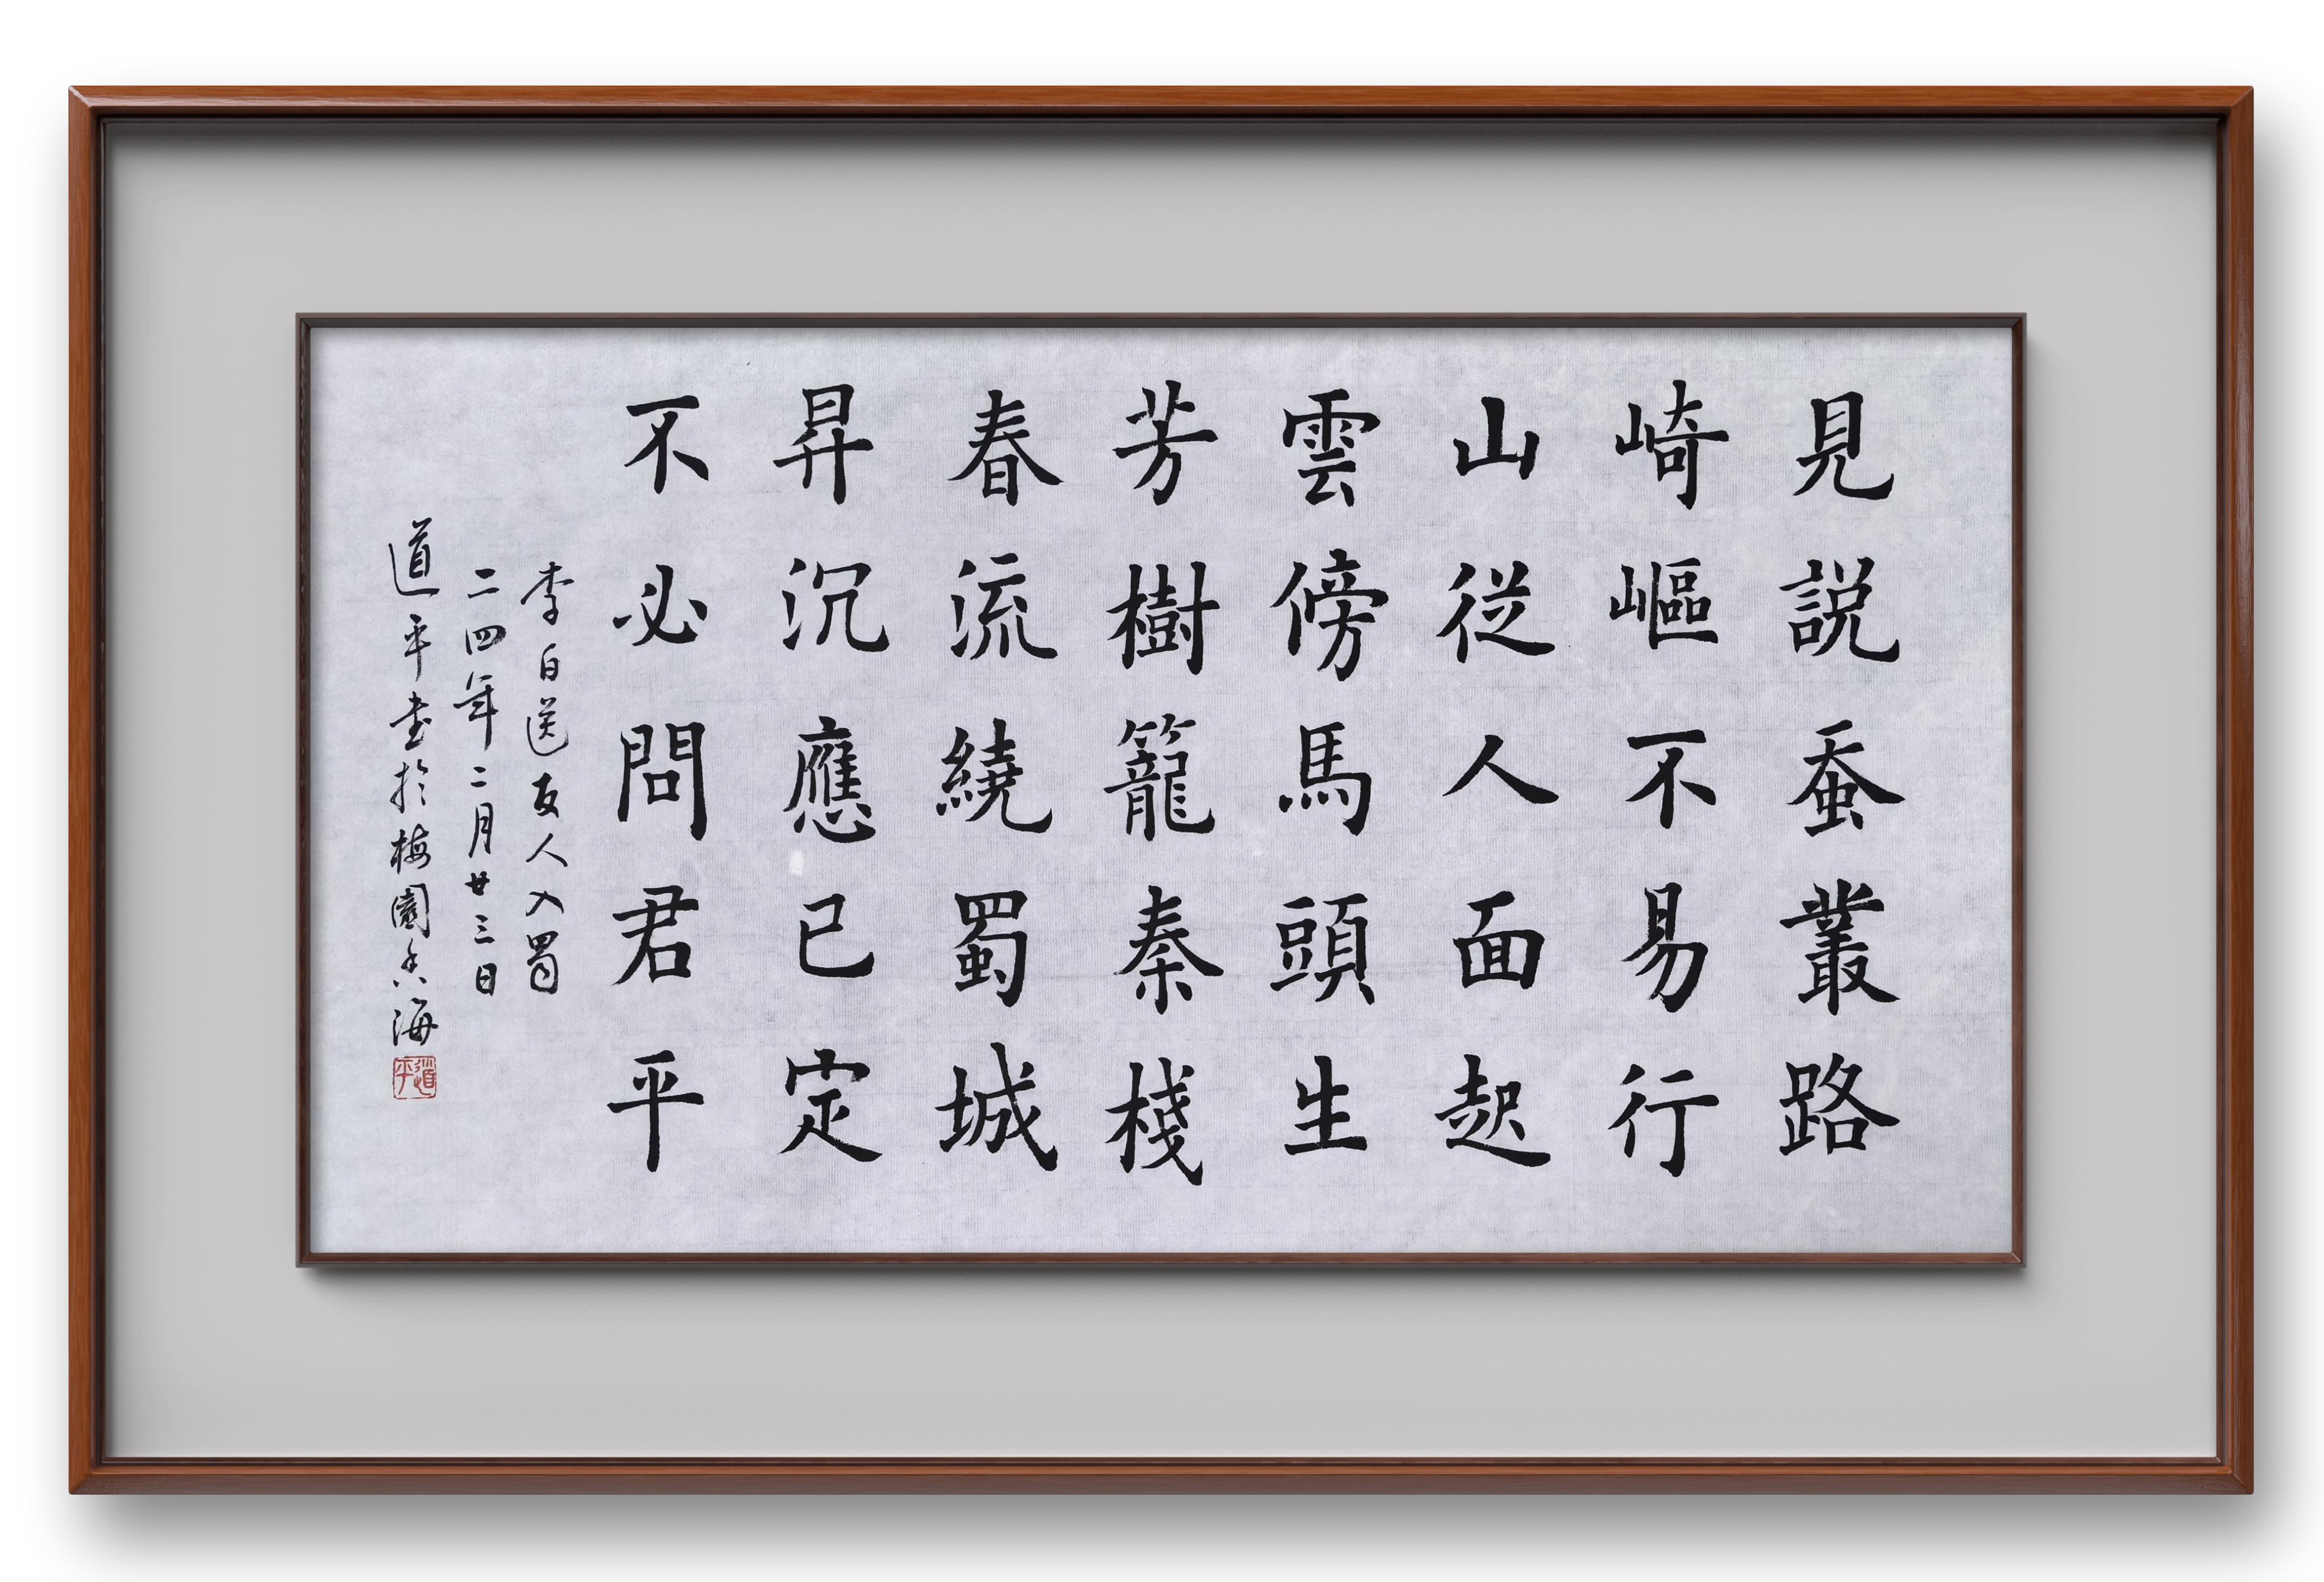 見説蚕叢路
崎嶇不易行
山従人面起
雲傍馬頭生
芳樹籠秦棧
春流繞蜀城
昇沉應已定
不必問君平
李白送友人入蜀
二四年二月廿三日
道平書於梅園上海
道平